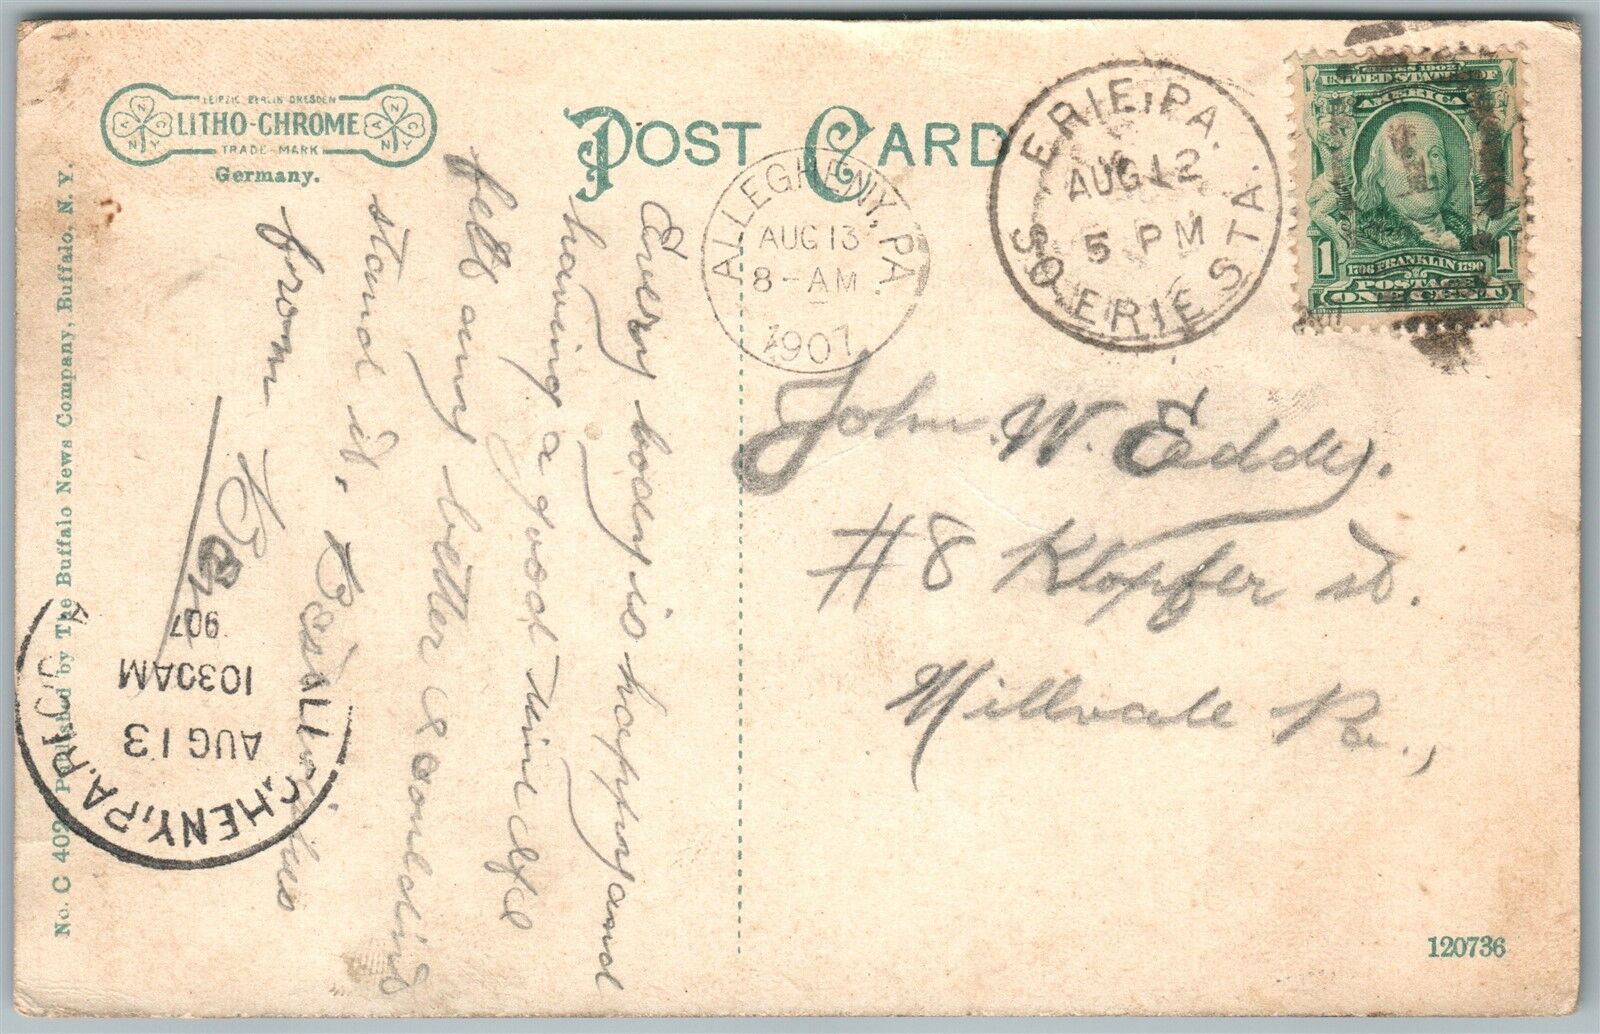 LEIPZIG BERLIN DRESDEN
LITHO-CHROME
TRADE-MARK
Germany.
POST CARD
ERIE, PA.
AUG 12
5 PM
SO. ERIE STA.
ALLEGHENY, PA.
AUG 13
8-AM
1907
SERIES 1902
UNITED STATES OF
AMERICA
1706 FRANKLIN 1790
1 1
POSTAGE
ONE CENT
John W. Eddy.
#8 Klopfer st.
Millvale Pa.,
Every body is happy and
having a good time
felt any better & couldnt
stand it,
from
Ben
AUG 13
1030AM
907
No. C 402 Published by The Buffalo News Company, Buffalo, N. Y.
120736